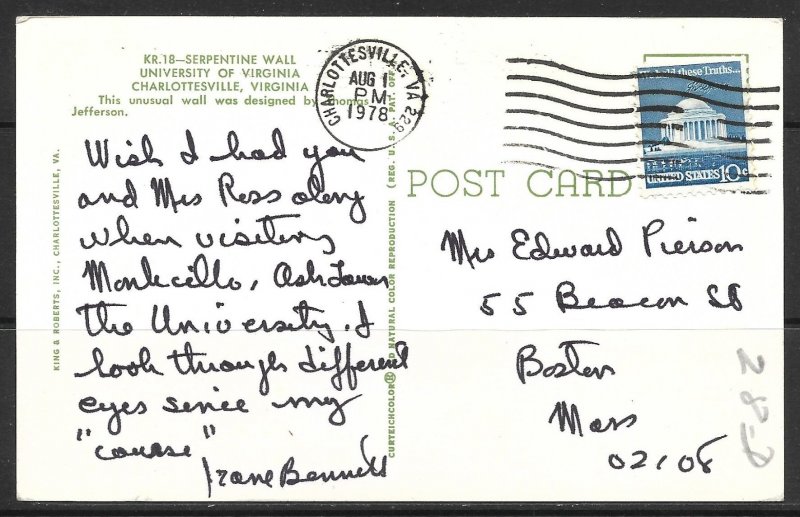 KR.18—SERPENTINE WALL
UNIVERSITY OF VIRGINIA
CHARLOTTESVILLE, VIRGINIA
This unusual wall was designed by Thomas
Jefferson.
Wish I had you
and Mrs Ross along
when visiting
Monticello, Ash Lawn
the University. I
look through different
eyes since my
"course"
Irane Bennett
KING & ROBERTS, INC., CHARLOTTESVILLE, VA.
CURTEICHCOLOR® 3D NATURAL COLOR REPRODUCTION (REG. U.S.A. PAT. OFF.)
CHARLOTTESVILLE, VA 229
AUG 1
PM
1978
hold these Truths...
UNITED STATES 10c
POST CARD
Mrs Edward Pierson
55 Beacon St
Boston
Mass
02108